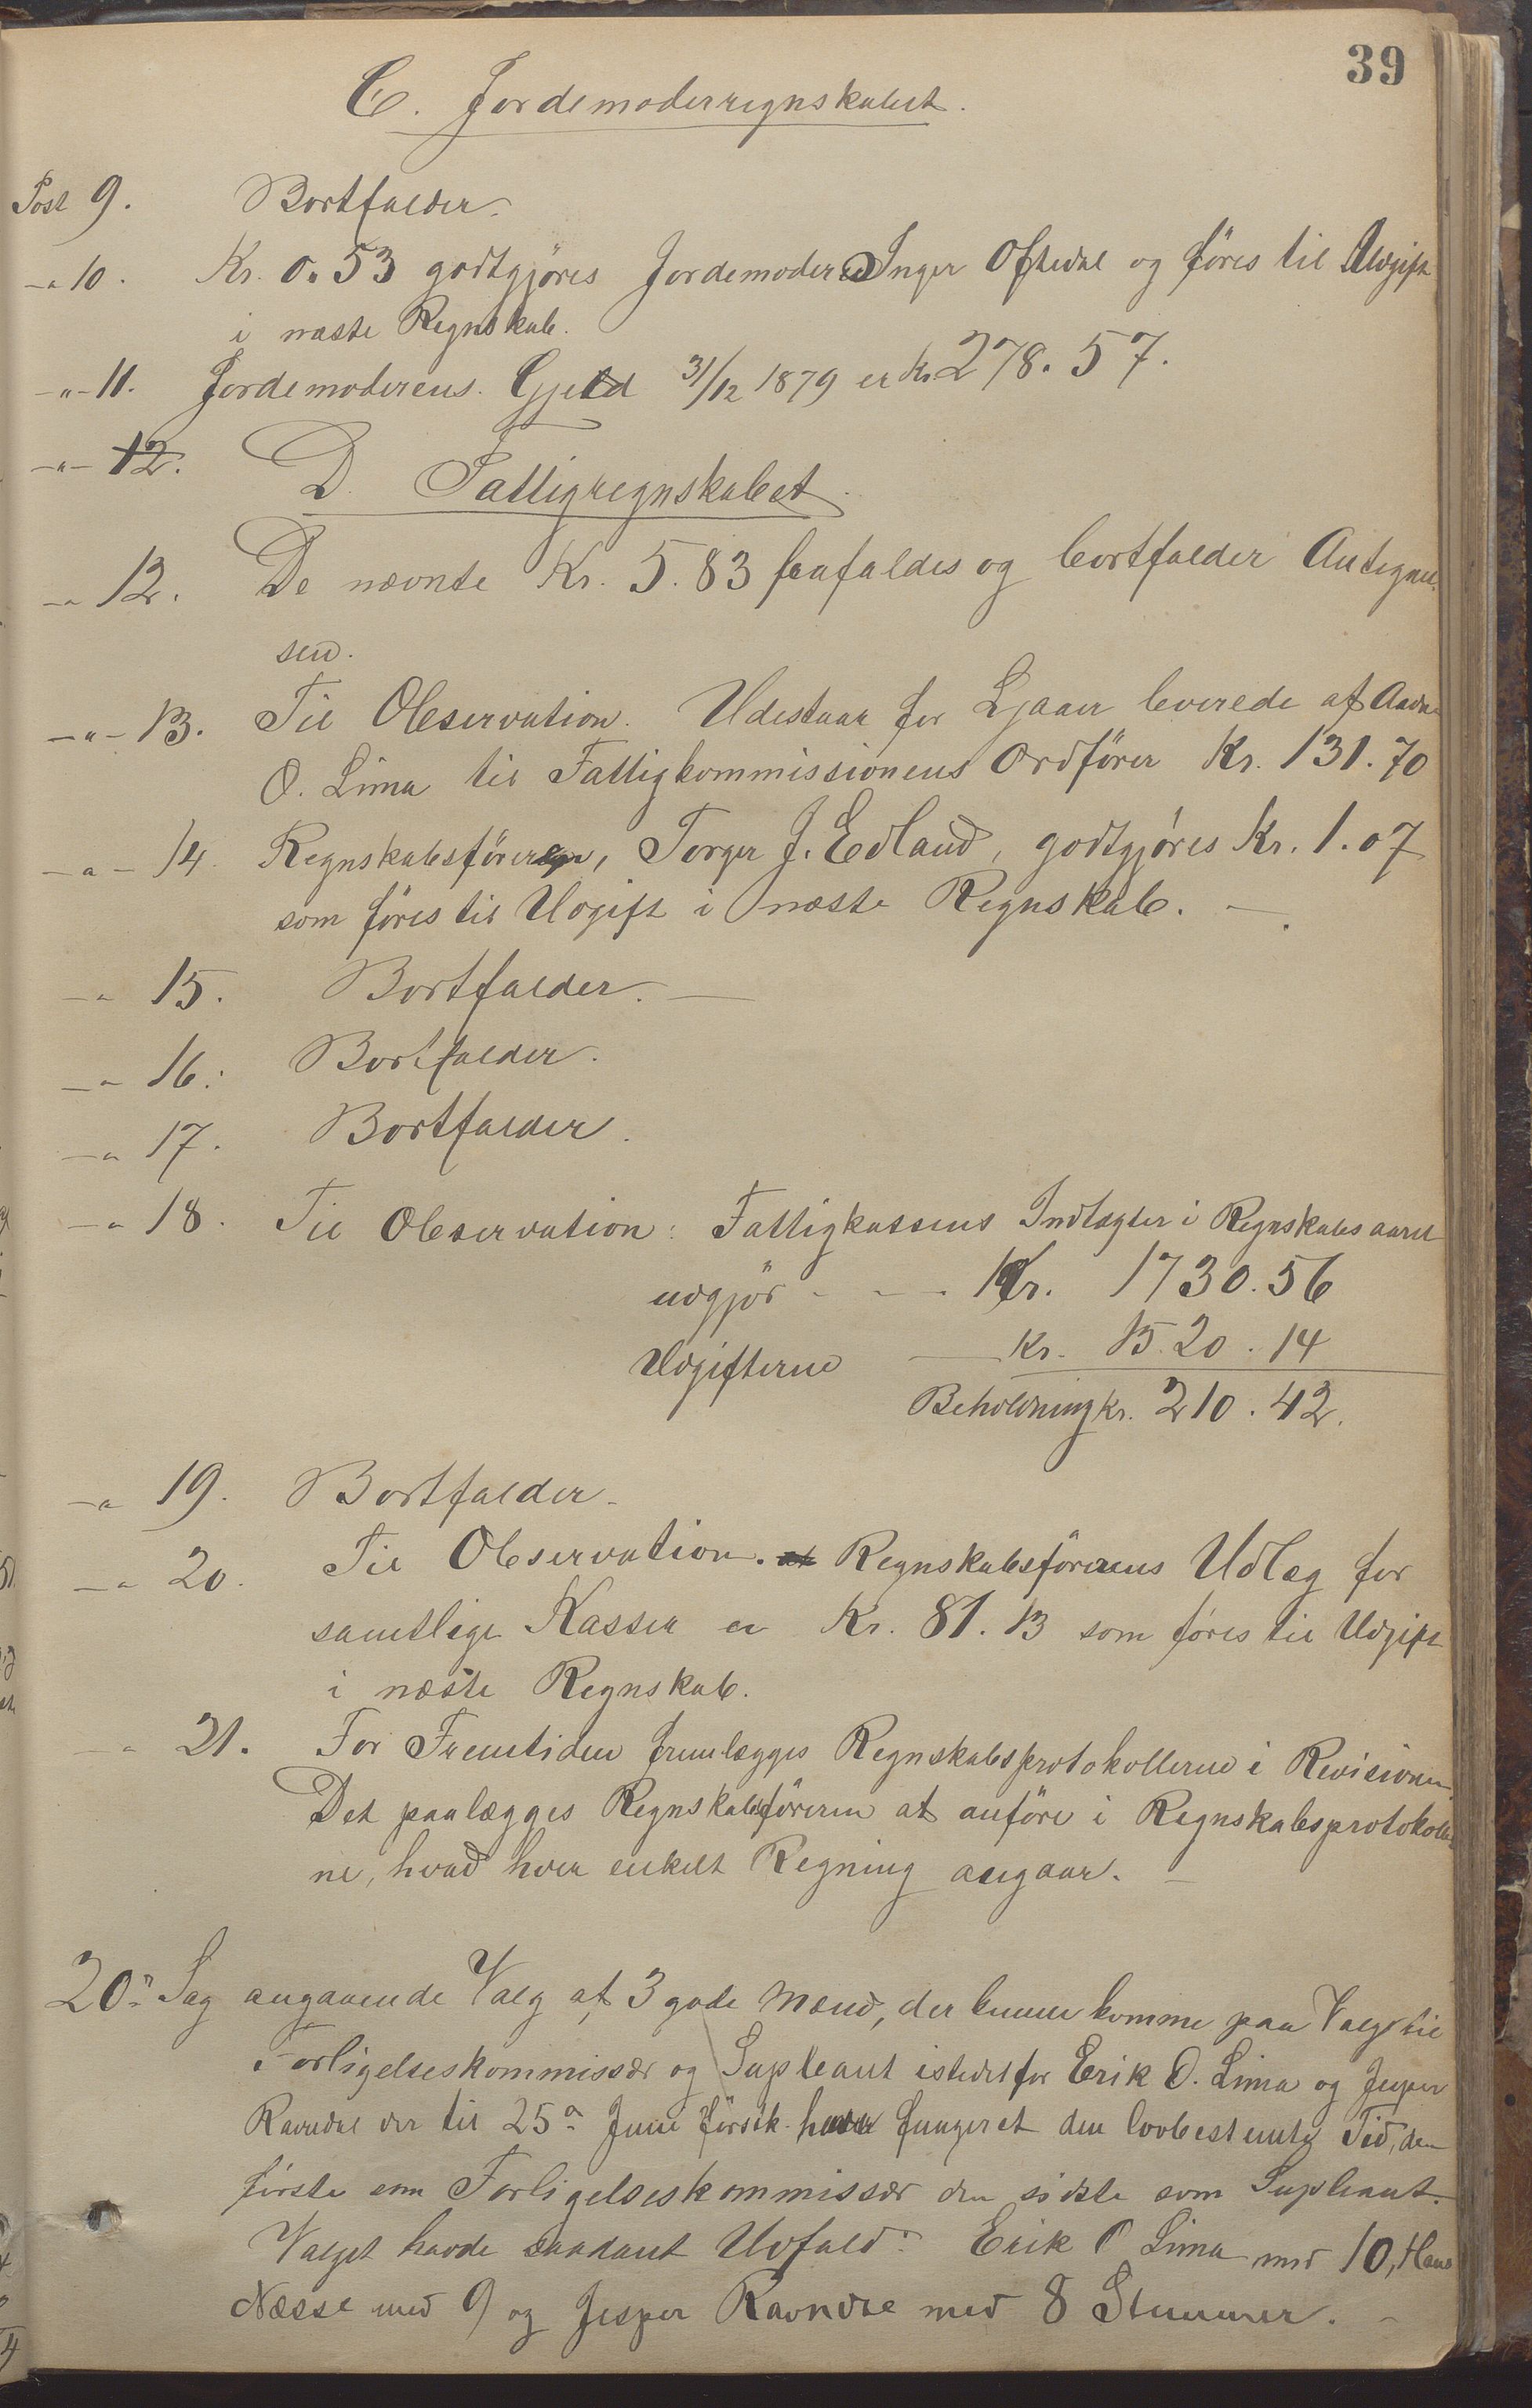 39
C. Jordemoderregnskabet.
Post 9. Bortfalder.
-"- 10. Kr. 0.53 godtgjöres Jordemoder Inger Oftedal og föres til Udgift
i næste Regnskab.
-"- 11. Jordemoderens Gjeld 31/12 1879 er Kr. 278.57.
-"- 12.
D. Fattigregnskabet.
-"- 12. De nævnte Kr. 5.83 frafaldes og bortfalder Antegnel-
sen.
-"- 13. Til Observation. Udestaar for Ljaaer leverede af Aadne
O. Lima til Fattigkommissionens Ordförer Kr. 131.70
-"- 14. Regnskabsföreren, Torger J. Edland, godtgjöres Kr. 1.07
som föres til Udgift i næste Regnskab. —
-"- 15. Bortfalder. —
-"- 16. Bortfalder.
-"- 17. Bortfalder.
-"- 18. Til Observation: Fattigkassens Indtægter i Regnskabsaaret
udgjör - - - Kr. 1730.56
Udgifterne — Kr. 1520.14
Beholdning Kr. 210.42.
-"- 19. Bortfalder.
-"- 20. Til Observation. at Regnskabsförerens Udlæg for
samtlige Kasser er Kr. 81.13 som föres til Udgift
i næste Regnskab.
-"- 21. For Fremtiden fremlægges Regnskabsprotokollerne i Revisionen.
Det paalægges Regnskabsföreren at anföre i Regnskabsprotokoller-
ne, hvad hver enkelt Regning angaar. —
20de Sag angaaende Valg af 3 gode Mænd, der kunne komme paa Valg til
Forligelseskommissær og Supleant istedetfor Erik O. Lima og Jesper
Ravndal der til 25de Juni förstk. have fungeret den lovbestemte Tid, den
förste som Forligelseskommissær den sidste som Supleant.
Valget havde saadant Udfald: Erik O Lima med 10, Hans
Næsse med 9 og Jesper Ravndal med 8 Stemmer. -